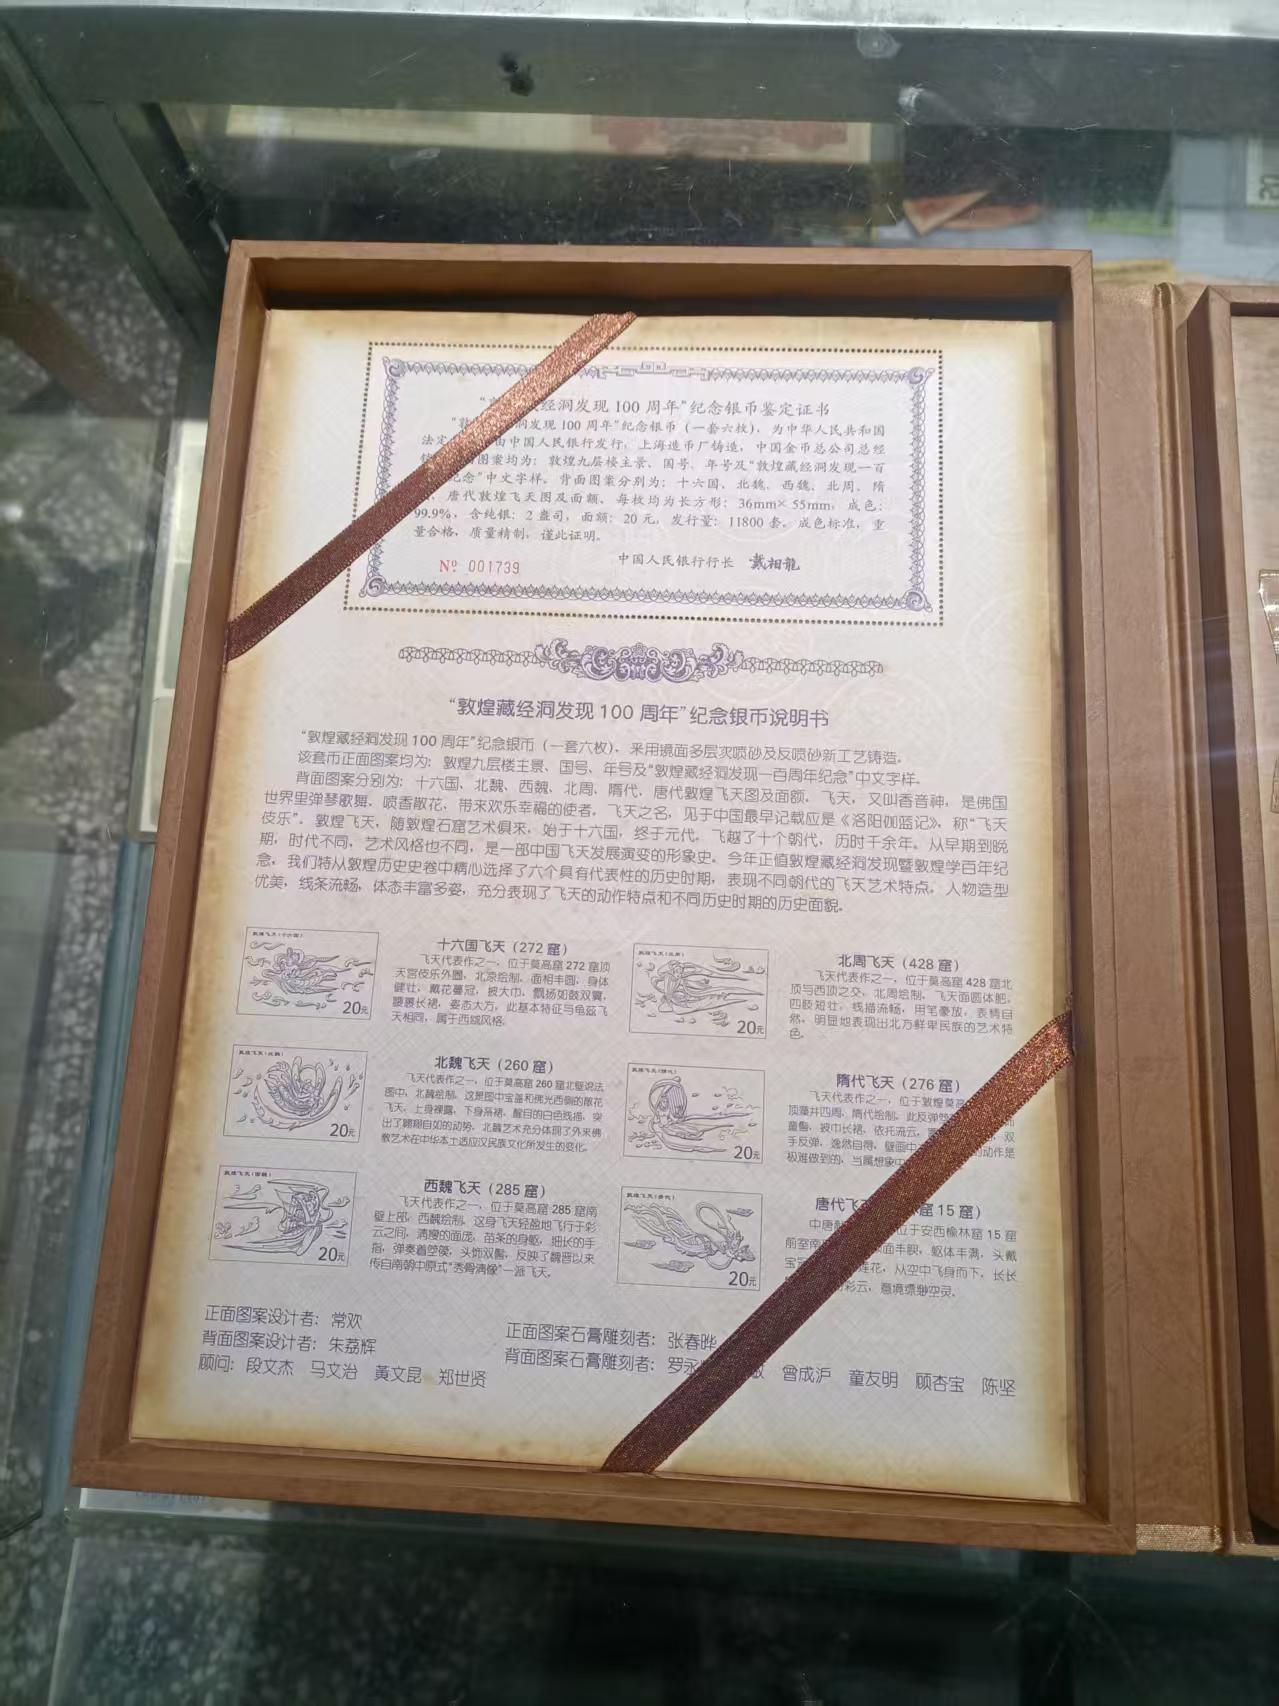 经洞发现 100 周年”纪念银币鉴定证书
洞发现 100 周年”纪念银币（一套六枚），为中华人民共和国
法定 由中国人民银行发行，上海造币厂铸造，中国金币总公司总经
图案均为：敦煌九层楼主景、国号、年号及“敦煌藏经洞发现一百
纪念”中文字样。背面图案分别为：十六国、北魏、西魏、北周、隋
唐代敦煌飞天图及面额。每枚均为长方形：36mm×55mm，成色：
99.9%，含纯银：2 盎司，面额：20 元，发行量：11800 套。成色标准，重
量合格，质量精制，谨此证明。
中国人民银行行长 戴相龍
Nº 001739
“敦煌藏经洞发现 100 周年”纪念银币说明书
“敦煌藏经洞发现 100 周年”纪念银币（一套六枚），采用镜面多层次喷砂及反喷砂新工艺铸造。
该套币正面图案均为：敦煌九层楼主景、国号、年号及“敦煌藏经洞发现一百周年纪念”中文字样。
背面图案分别为：十六国、北魏、西魏、北周、隋代、唐代敦煌飞天图及面额。飞天，又叫香音神，是佛国
世界里弹琴歌舞、喷香散花，带来欢乐幸福的使者，飞天之名，见于中国最早记载应是《洛阳伽蓝记》，称“飞天
伎乐”。敦煌飞天，随敦煌石窟艺术俱来，始于十六国，终于元代，飞越了十个朝代，历时千余年。从早期到晚
期，时代不同，艺术风格也不同，是一部中国飞天发展演变的形象史。今年正值敦煌藏经洞发现暨敦煌学百年纪
念，我们特从敦煌历史史卷中精心选择了六个具有代表性的历史时期，表现不同朝代的飞天艺术特点。人物造型
优美，线条流畅，体态丰富多姿，充分表现了飞天的动作特点和不同历史时期的历史面貌。
敦煌飞天(十六国)
20元
十六国飞天（272 窟）
飞天代表作之一，位于莫高窟 272 窟顶
天宫伎乐外圈，北凉绘制，面相丰圆，身体
健壮，戴花蔓冠，披大巾，飘扬如鼓双翼，
腰裹长裙，姿态大方，此基本特征与龟兹飞
天相同，属于西域风格。
敦煌飞天(北魏)
20元
北魏飞天（260 窟）
飞天代表作之一，位于莫高窟 260 窟北壁说法
图中，北魏绘制。这是图中宝盖和佛光西侧的散花
飞天，上身裸露，下身落裙，醒目的白色线描，突
出了翱翔自如的动势，北魏艺术充分体现了外来佛
教艺术在中华本土适应汉民族文化所发生的变化。
敦煌飞天(西魏)
20元
西魏飞天（285 窟）
飞天代表作之一，位于莫高窟 285 窟南
壁上部，西魏绘制。这身飞天轻盈地飞行于彩
云之间，清瘦的面庞，苗条的身躯，细长的手
指，弹奏着箜篌，头饰双髻，反映了魏晋以来
传自南朝中原式“秀骨清像”一派飞天。
敦煌飞天(北周)
20元
北周飞天（428 窟）
飞天代表作之一，位于莫高窟 428 窟北
顶与西顶之交，北周绘制，飞天面圆体肥，
四肢短壮，线描流畅，用笔豪放，表情自
然，明显地表现出北方鲜卑民族的艺术特
色。
敦煌飞天(隋代)
20元
隋代飞天（276 窟）
飞天代表作之一，位于敦煌莫高
顶藻井四周，隋代绘制。此反弹
童髻，披巾长裙，依托流云， 双
手反弹，逸然自得，壁画中 的动作是
极难做到的，当属想象中
敦煌飞天(唐代)
20元
唐代飞 窟 15 窟）
中唐 位于安西榆林窟 15 窟
前室南 面丰腴，躯体丰满，头戴
宝 莲花，从空中飞身而下，长长
彩云，意境缥缈空灵。
正面图案设计者：常欢
背面图案设计者：朱荔辉
顾问：段文杰 马文治 黃文昆 郑世贤
正面图案石膏雕刻者：张春晔
背面图案石膏雕刻者：罗永 敏 曾成沪 童友明 顾杏宝 陈坚